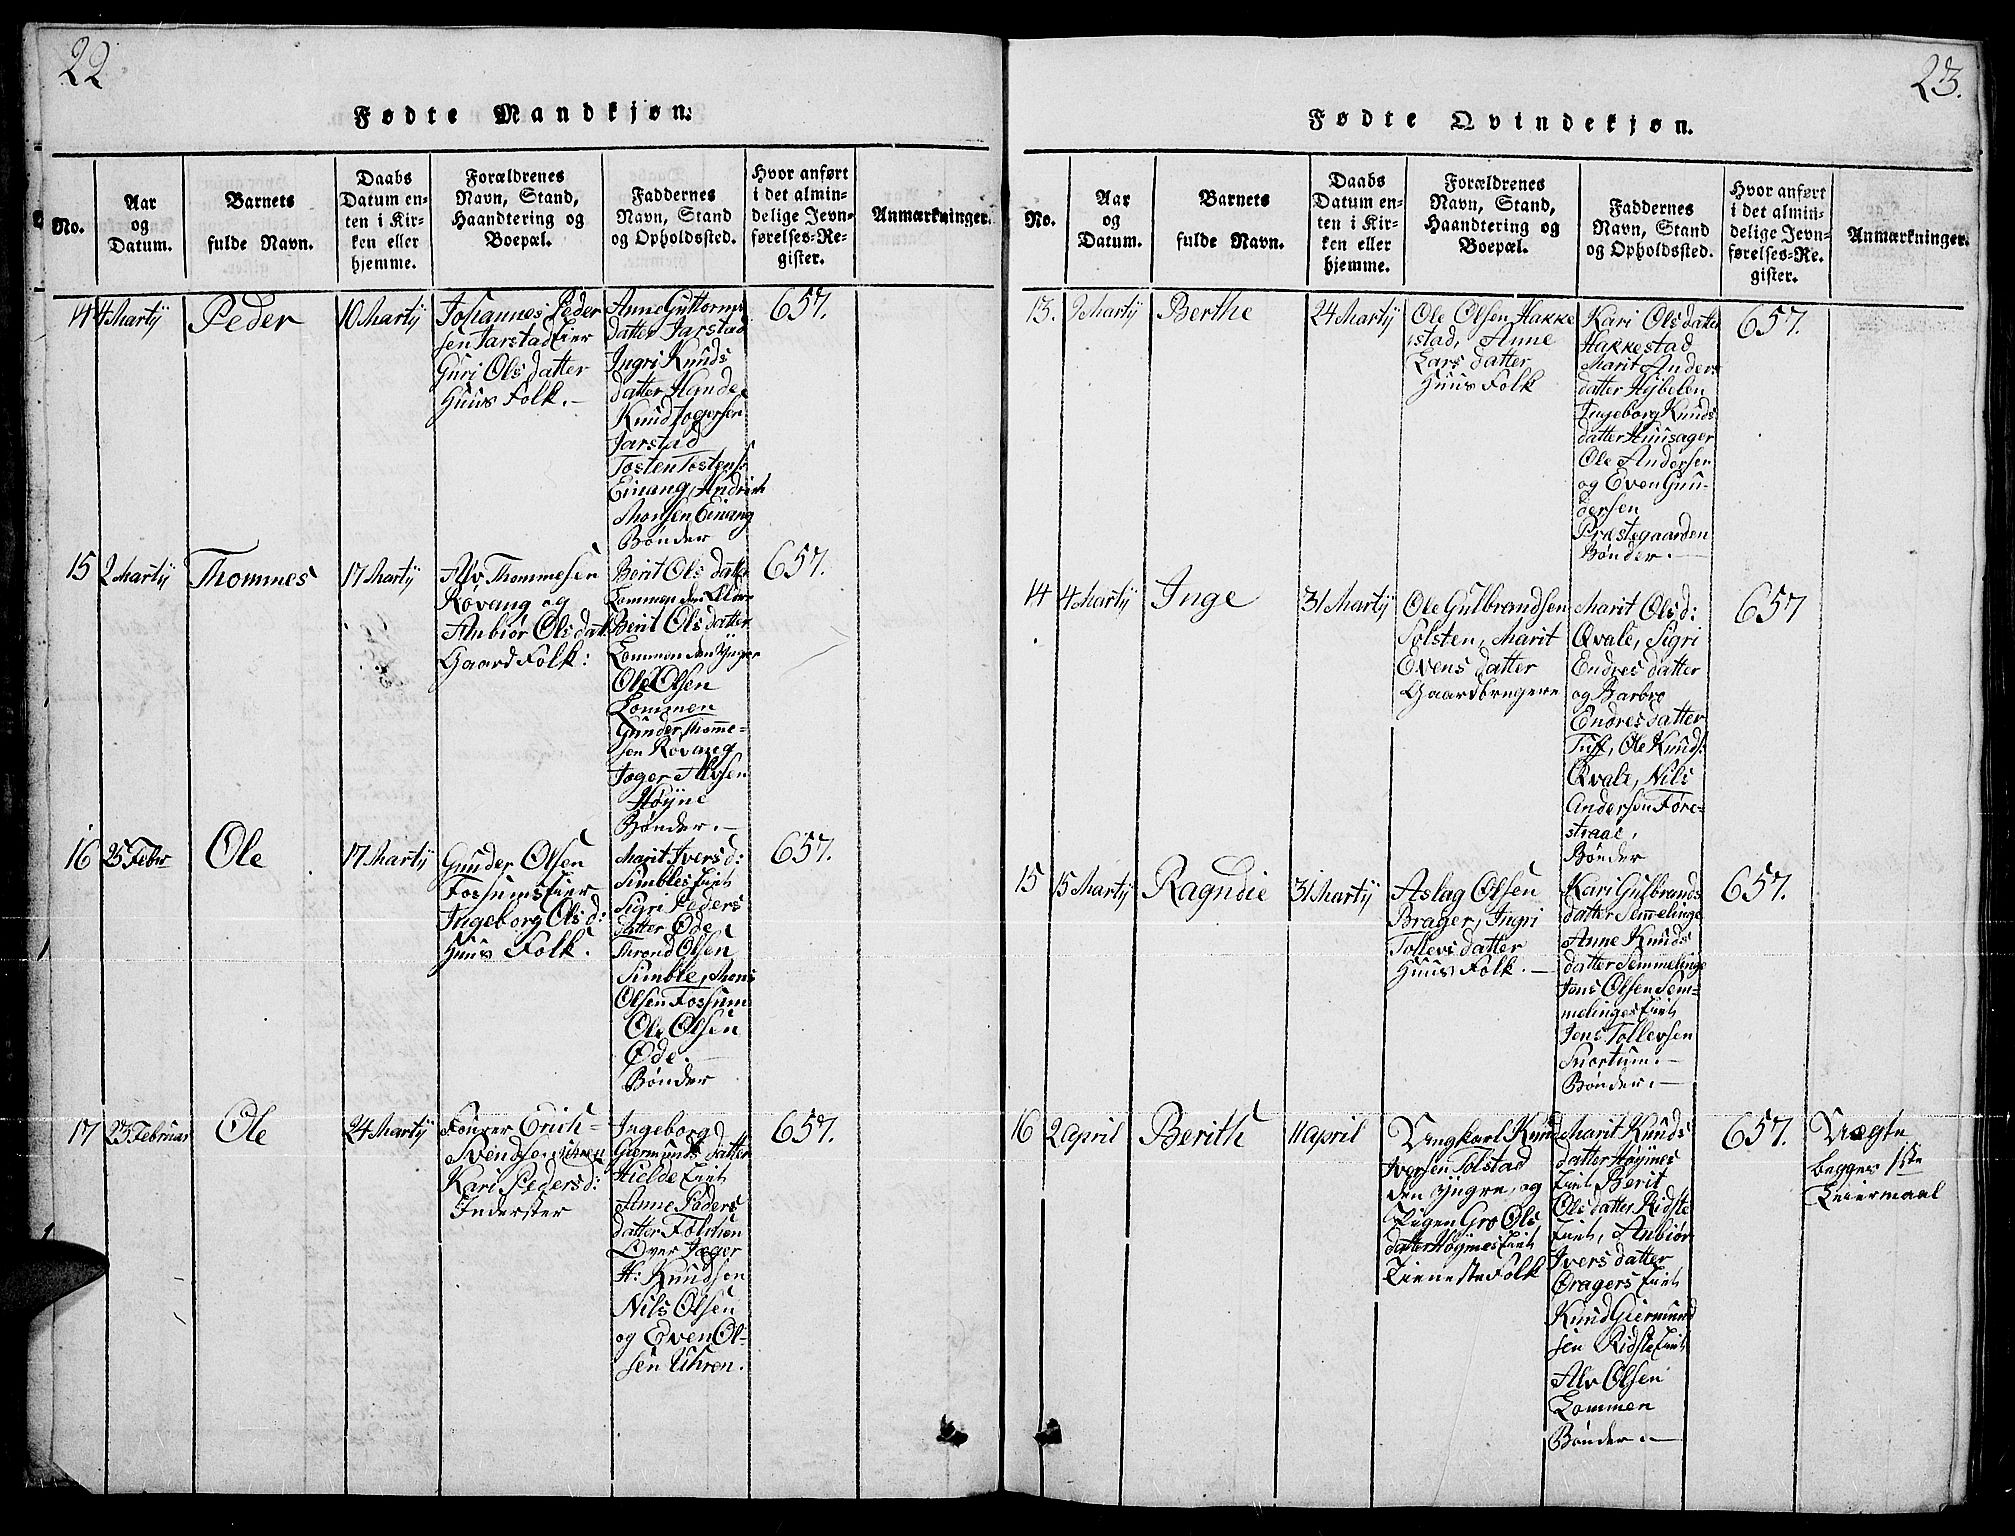 22
Fødte Mandkjøn.
No.
Aar
og
Datum.
Barnets
fulde Navn.
Daabs
Datum en-
ten i Kir-
ken eller
hjemme.
Forældrenes
Navn, Stand,
Haandtering og
Boepæl.
Faddernes
Navn, Stand
og Opholdssted.
Hvor anført
i det almin-
delige Jevn-
førelses-Re-
gister.
Anmærkninger.
14
4 Martÿ
Peder
10 Martÿ
Johannes Peder
sen Jarstad Eier
Guri Olsdatter
Huus Folk.
Anne Guttorms
datter Jarstad
Ingri Knuds
datter Hande
Knud Jogersen
Jarstad
Tosten Tostens:
Einang, Andrias
Monsen Einang
Bønder
657.
15
2 Martÿ
Thommes
17 Martÿ
Alv Thommesen
Røvang og
Anbiør Olsdat
Gaard Folk:
Berit Olsdatter
Lommen den Eldre
Berit Olsdatter
Lommen den Ynger
Ole Olsen
Lommen
Gunder Thomme-
sen Røvang
Joger Alvsen
Høÿne
Bønder.
657.
16
25 Febr
Ole
17 Martÿ
Gunder Olsen
Fossums Eier
Ingeborg Olsd:
Huus Folk.
Marit Iversd:
Simbles Eiet
Sigri Peders
datter Øde
Thrond Olsen
Simble, Mons
Olsen Fossum
Ole Olsen
Øde.
Bønder
657.
17
23 Februar
Ole
24 Martÿ
Fourer Erich
Svendsen Uhren
Kari Pedersd:
Inderster
Ingeborg
Giermunds datter
Hielde Eiet
Anne Peders
datter Folstien
Over Jæger
H: Knudsen
Nils Olsen
og Even Ol-
sen Uhren.
657.
23.
Fødte Qvindekjøn.
No.
Aar
og
Datum.
Barnets
fulde Navn.
Daabs
Datum en-
ten i Kir-
ken eller
hjemme.
Forældrenes
Navn, Stand,
Haandtering og
Boepæl.
Faddernes
Navn, Stand
og Opholdssted.
Hvor anført
i det almin-
delige Jevn-
førelses-Re-
gister.
Anmærkninger.
13.
9 Martÿ
Berthe
24 Martÿ
Ole Olsen Hakke
stad, Anne
Lars datter
Huus Folk
Kari Olsdatter
Hakkestad
Marit Anders
datter Hÿbelen
Ingeborg Knuds
datter Huusager
Ole Andersen
og Even Gun-
dersen
Præstegaarden
Bønder.
657.
14
4 Martÿ
Inge
31 Martÿ
Ole Gulbrandsen
Solsten, Marit
Evens datter
Gaardbrugere
Marit Olsd:
Qvale, Sigri
Endres datter
og Barbro
Endresdatter
Tuff, Ole Knuds:
Qvale, Nils
Andersen Føre-
straae,
Bønder
657
15
15 Martÿ
Ragndie
31 Martÿ
Aslag Olsen
Brager, Ingri
Tollevs datter
Huus Folk.
Kari Gulbrands
datter Semmelinge
Anne Knuds
datter Semmelinge
Jens Olsen Sem-
melinges Eiet
Jens Tollevsen
Bønder.
657.
16
2 April
Berith
11 April
Ungkarl Knud
Iversen Tolstad
den yngre, og
Pigen Gro Ols
datter Høÿnes Eiet
Tieneste Folk
Marit Knuds
datter Høÿnes
Eiet, Berit
Olsdatter Ridste
Eiet, Anbiør
Ivers datter
Dragers Eiet
Knud Giermund
sen Ridste Eiet
Alv Olsen
Lommen
Bønder.
657.
Uægte
begges 1ste
Leiermaal